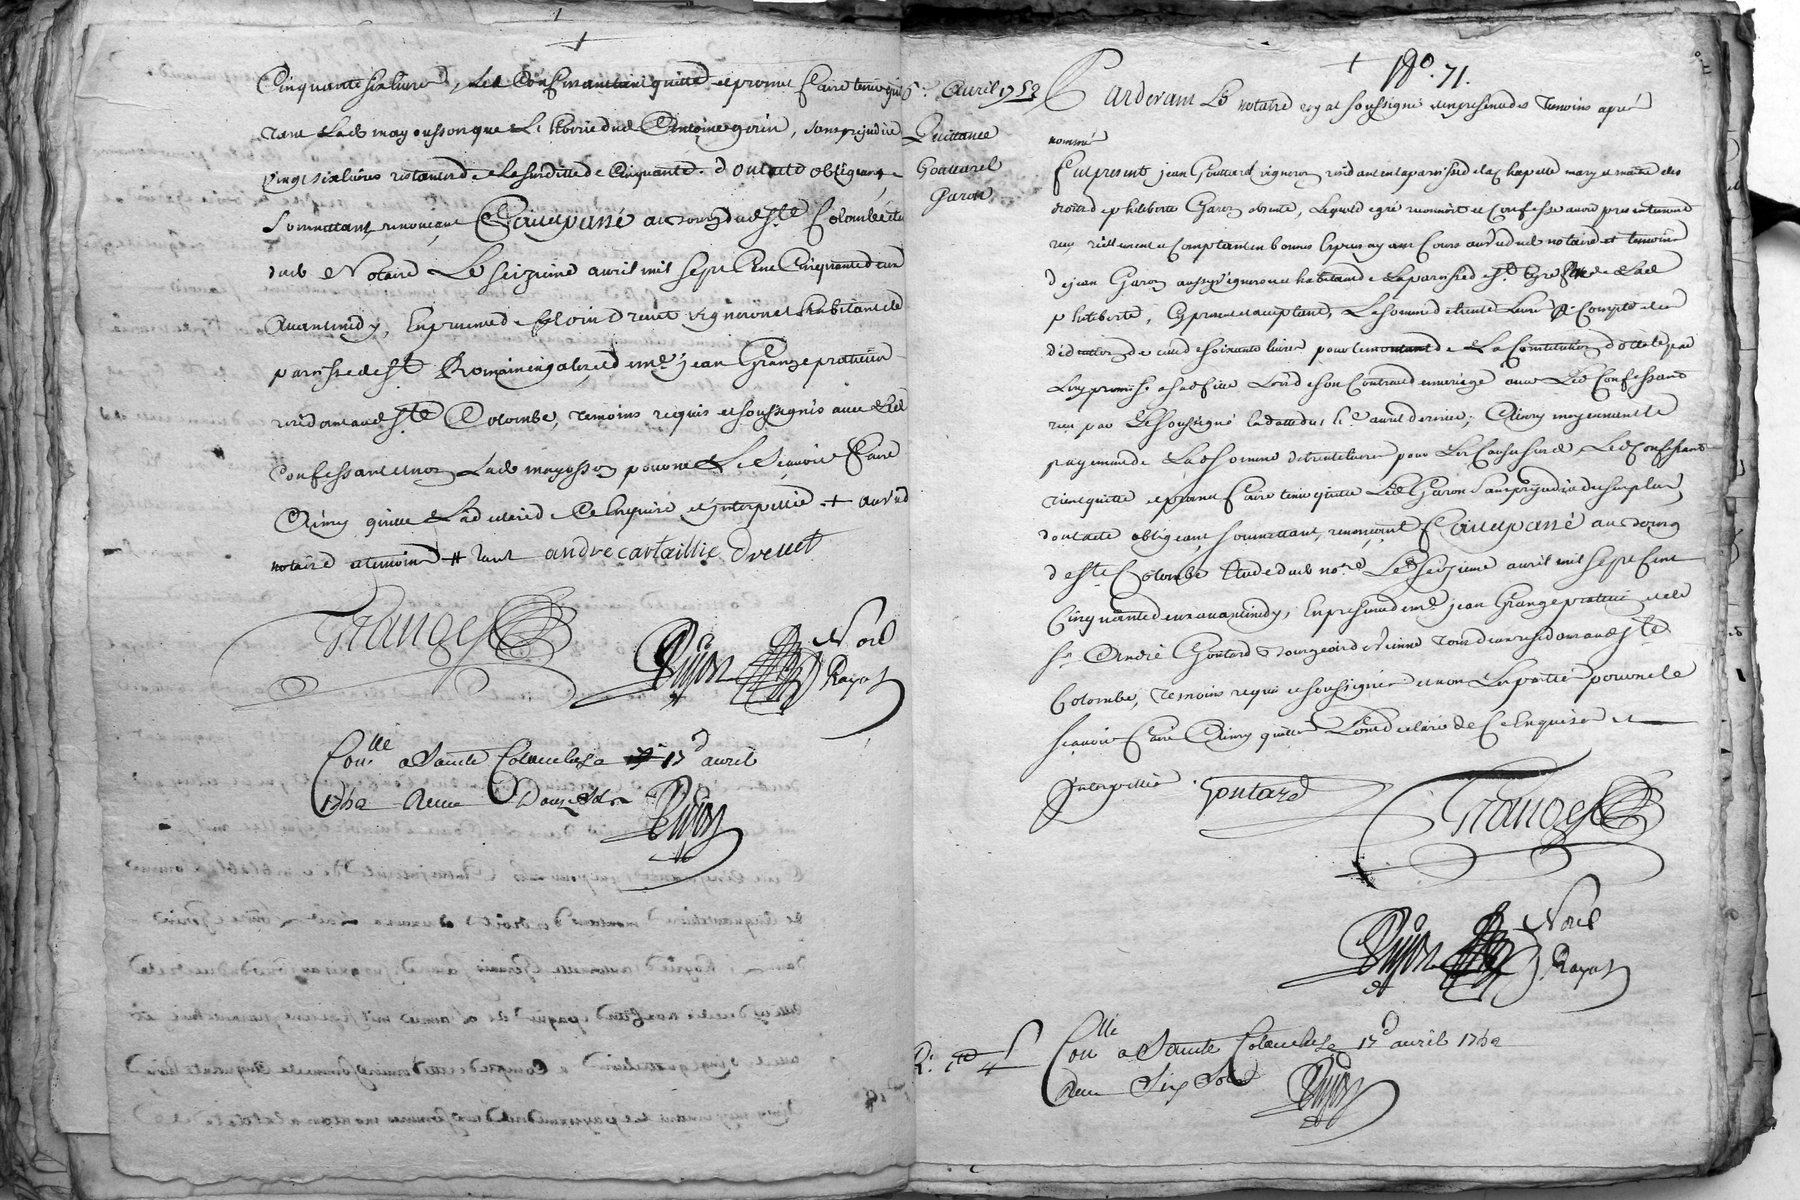 Cinquante six livres, Led Confessant quitte et promet faire tenir quitte
lad mayousson que le horiedud Antoine gerin, sans prejudice
vingt six livres restantes de la susditte de Cinquante. dont acte obligeant
soumettant renonceant Fait et passé au bourg dud ste Colombe étude
dud Notaire Le seizieme avril mil sept Cent Cinquante deux
avant midy, En presence de drevet vigneron et habitant de lad
parroisse de st Romain en galere et de me jean Grange praticien
residant aud ste Colombe, temoins requis et soussignés avec Led
Confessant et non Lad mayosson pour ne Le sçavoir faire
Ainsy quelle L'a declaré de Ce Enquise et Interpellée + aud
notaire et temoins # andre cartaillie drevet
Grange
Dujon Nore Royal
Con.lle a Sainte Colombe le 17 avril
1752 Receu Douze Sols
Dujon
Avril 1752
Quittance
Gouttard
Garon
+ No. 71.
Pardevant Le notaire royal soussigné et en presence des Temoins après
nommés
Fut present jean Gouttard vigneron residant en la parroisse de la Chapelle mary et maitre des
droits de philiberte Garon absente, Lequel de gré reconnoit et Confesse avoir presentement
reçu réellement et Comptant en bonnes Especes ayant Cours au vu dud notaire et temoins
de jean Garon aussy vigneron et habitant de La parroisse de st Cyre de Lad
philiberte, Cy present et acceptant, La somme de trente Livres à Compte et en
déduction de celle de soixante livres pour le montant de La Constitution dottale par
Luy promise a sa fille Lors de son Contract de mariage avec Led Confessant
reçu par Le soussigné avril dernier, Ainsy moyennant le
payement de Lad somme de trente livres pour Les Causes susd, Led Confessant
tient quitte et promet faire tenir quitte Led Garon sans prejudice du surplus
dont acte obligeant, soumettant, renonceant Fait et passé au bourg
de ste Colombe Etude dud nore Led seizieme avril mil sept Cent
Cinquante deux avant midy, En presence de me jean Grange praticien et de
sr André Goutard Bourgeois de vienne tous deux residant aud ste
Colombe, temoins requis et soussignés et non Les parties pour ne le
sçavoir faire Ainsy quelles L'ont declaré de Ce Enquises et
Interpellées Goutard
Grange
Dujon Nore Royal
Con.lle a Sainte Colombe le 17 avril 1752
Receu Six Sols
Dujon